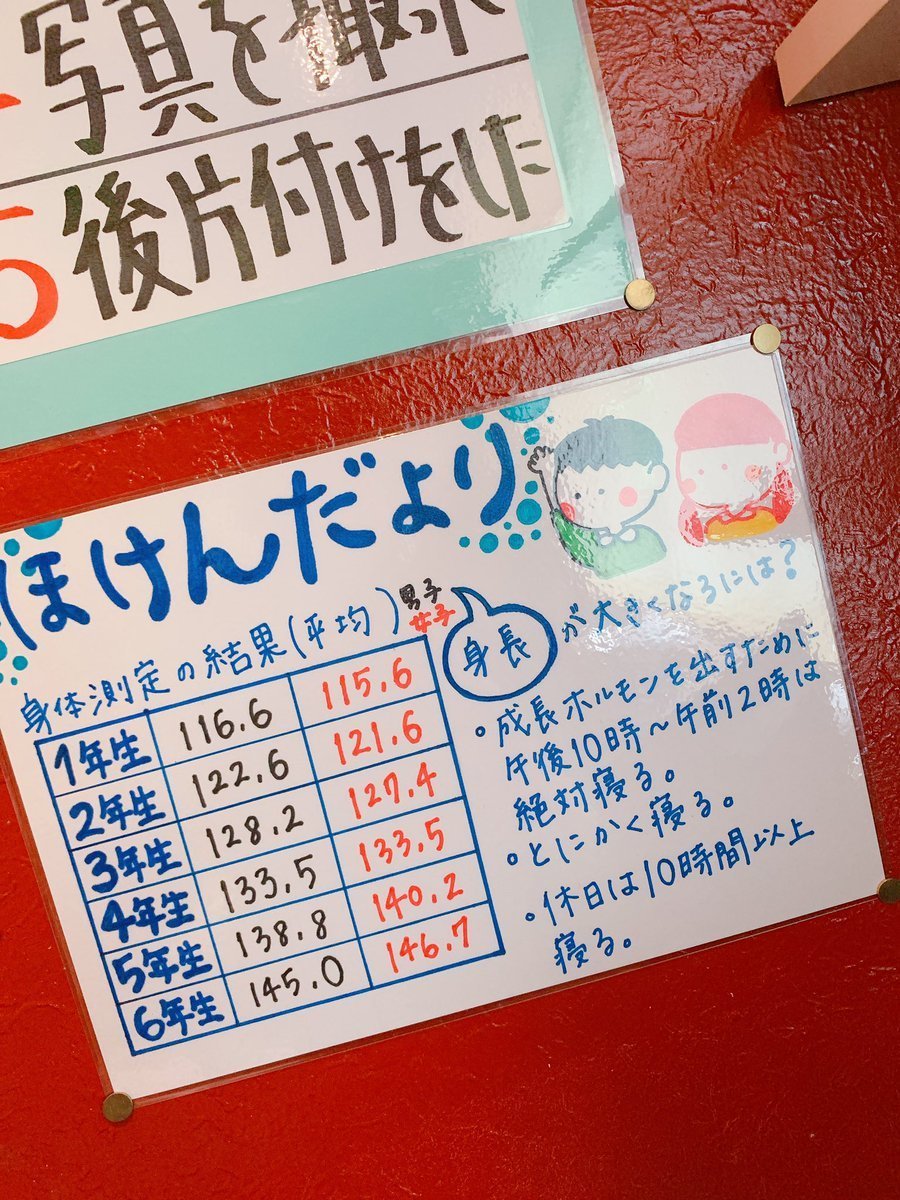 写真を撮った
5 後片付けをした
ほけんだより
身体測定の結果(平均) 男子
女子
1年生 116.6 115.6
2年生 122.6 121.6
3年生 128.2 127.4
4年生 133.5 133.5
5年生 138.8 140.2
6年生 145.0 146.7
身長が大きくなるには?
・成長ホルモンを出すために
午後10時~午前2時は
絶対寝る。
・とにかく寝る。
・休日は10時間以上
寝る。